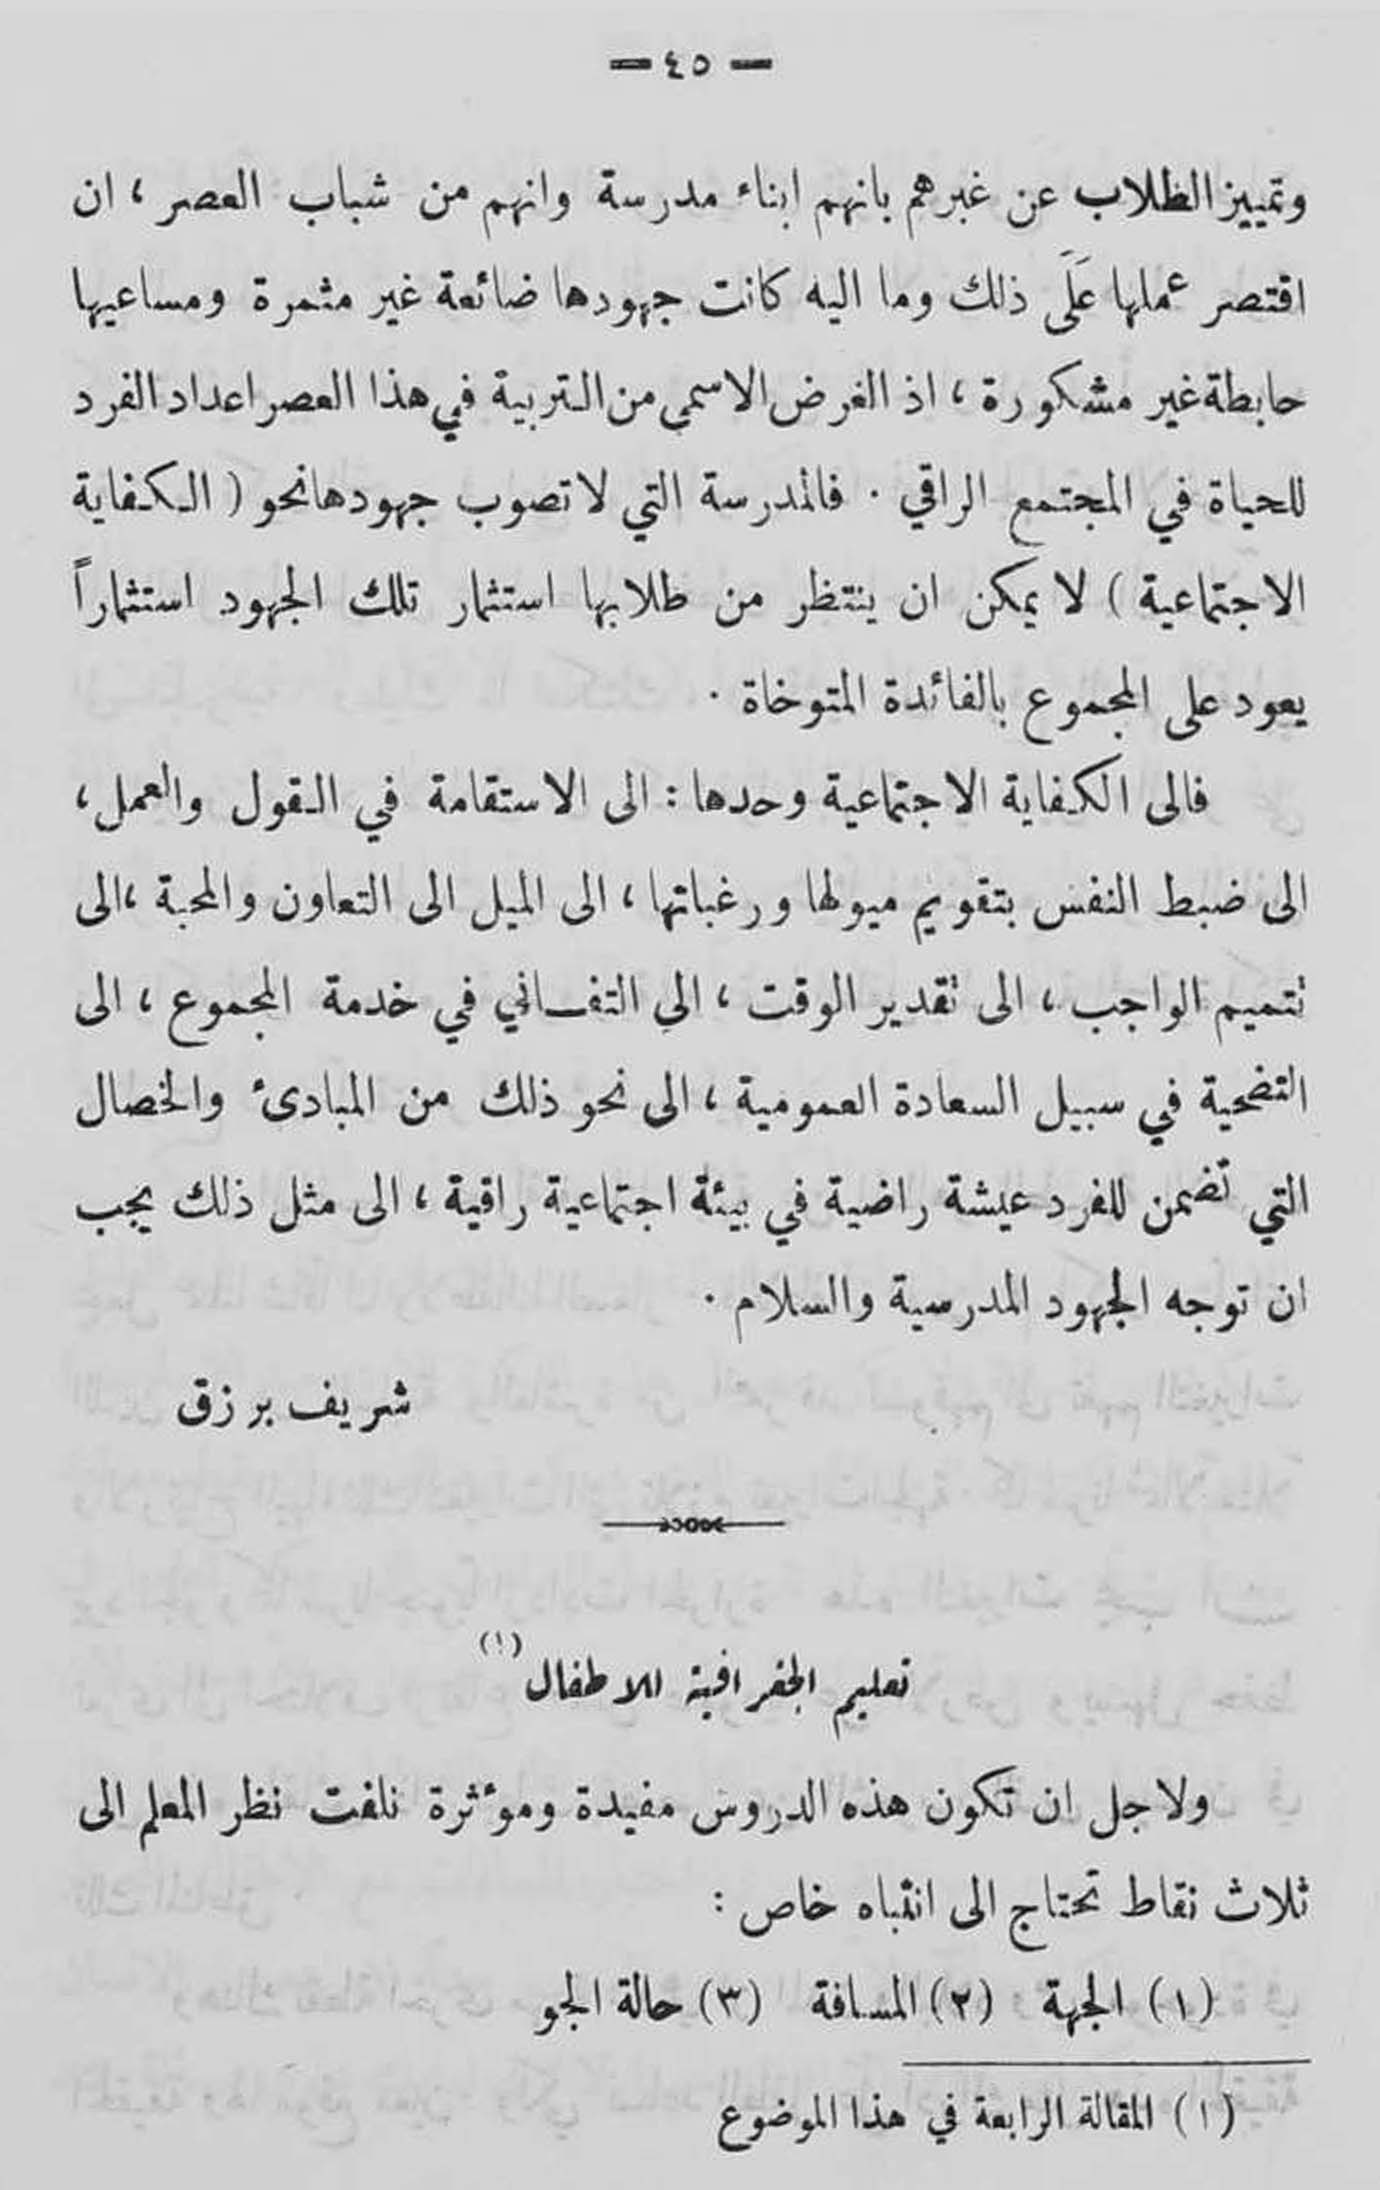 — ٤٥ —
وتمييز الطلاب عن غيرهم بانهم ابناء مدرسة وانهم من شباب العصر ، ان
اقتصر عملها عَلَى ذلك وما اليه كانت جهودها ضائعة غير مثمرة ومساعيها
حابطة غير مشكورة ، اذ الغرض الاسمى من التربية في هذا العصر اعداد الفرد
للحياة في المجتمع الراقي . فالمدرسة التي لا تصوب جهودها نحو ( الكفاية
الاجتماعية ) لا يمكن ان ينتظر من طلابها استثمار تلك الجهود استثماراً
يعود على المجموع بالفائدة المتوخاة .
فالى الكفاية الاجتماعية وحدها : الى الاستقامة في القول والعمل ،
الى ضبط النفس بتقويم ميولها ورغباتها ، الى الميل الى التعاون والمحبة ، الى
تتميم الواجب ، الى تقدير الوقت ، الى التفــاني في خدمة المجموع ، الى
التضحية في سبيل السعادة العمومية ، الى نحو ذلك من المبادئ والخصال
التي تضمن للفرد عيشة راضية في بيئة اجتماعية راقية ، الى مثل ذلك يجب
ان توجه الجهود المدرسية والسلام .
شريف برزق
تعليم الجغرافية للاطفال (١)
ولاجل ان تكون هذه الدروس مفيدة وموءثرة نلفت نظر المعلم الى
ثلاث نقاط تحتاج الى انتباه خاص :
(١) الجهة (٢) المسافة (٣) حالة الجو
(١) المقالة الرابعة في هذا الموضوع